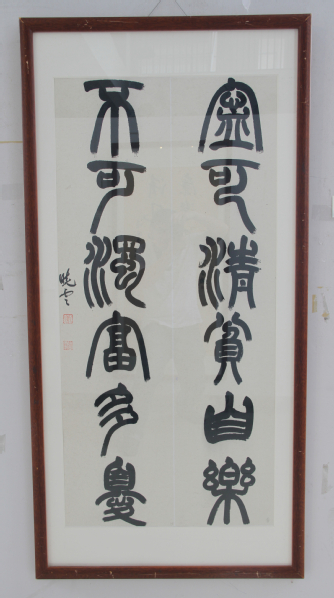 寧可清貧自樂
不可濁富多憂
曉雲